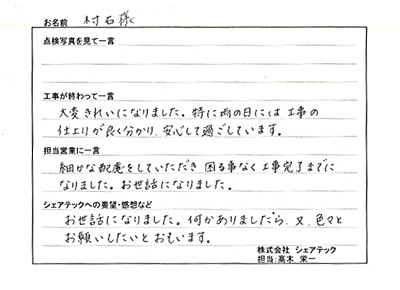 お名前 村石様
点検写真を見て一言
工事が終わって一言
大変きれいになりました。特に雨の日には工事の
仕上りが良く分かり、安心して過ごしています。
担当営業に一言
細かな配慮をしていただき 困る事なく工事完了までに
なりました。お世話になりました。
シェアテックへの要望・感想など
お世話になりました。何かありましたら、又、色々と
お願いしたいとおもいます。
株式会社 シェアテック
担当：高木 栄一